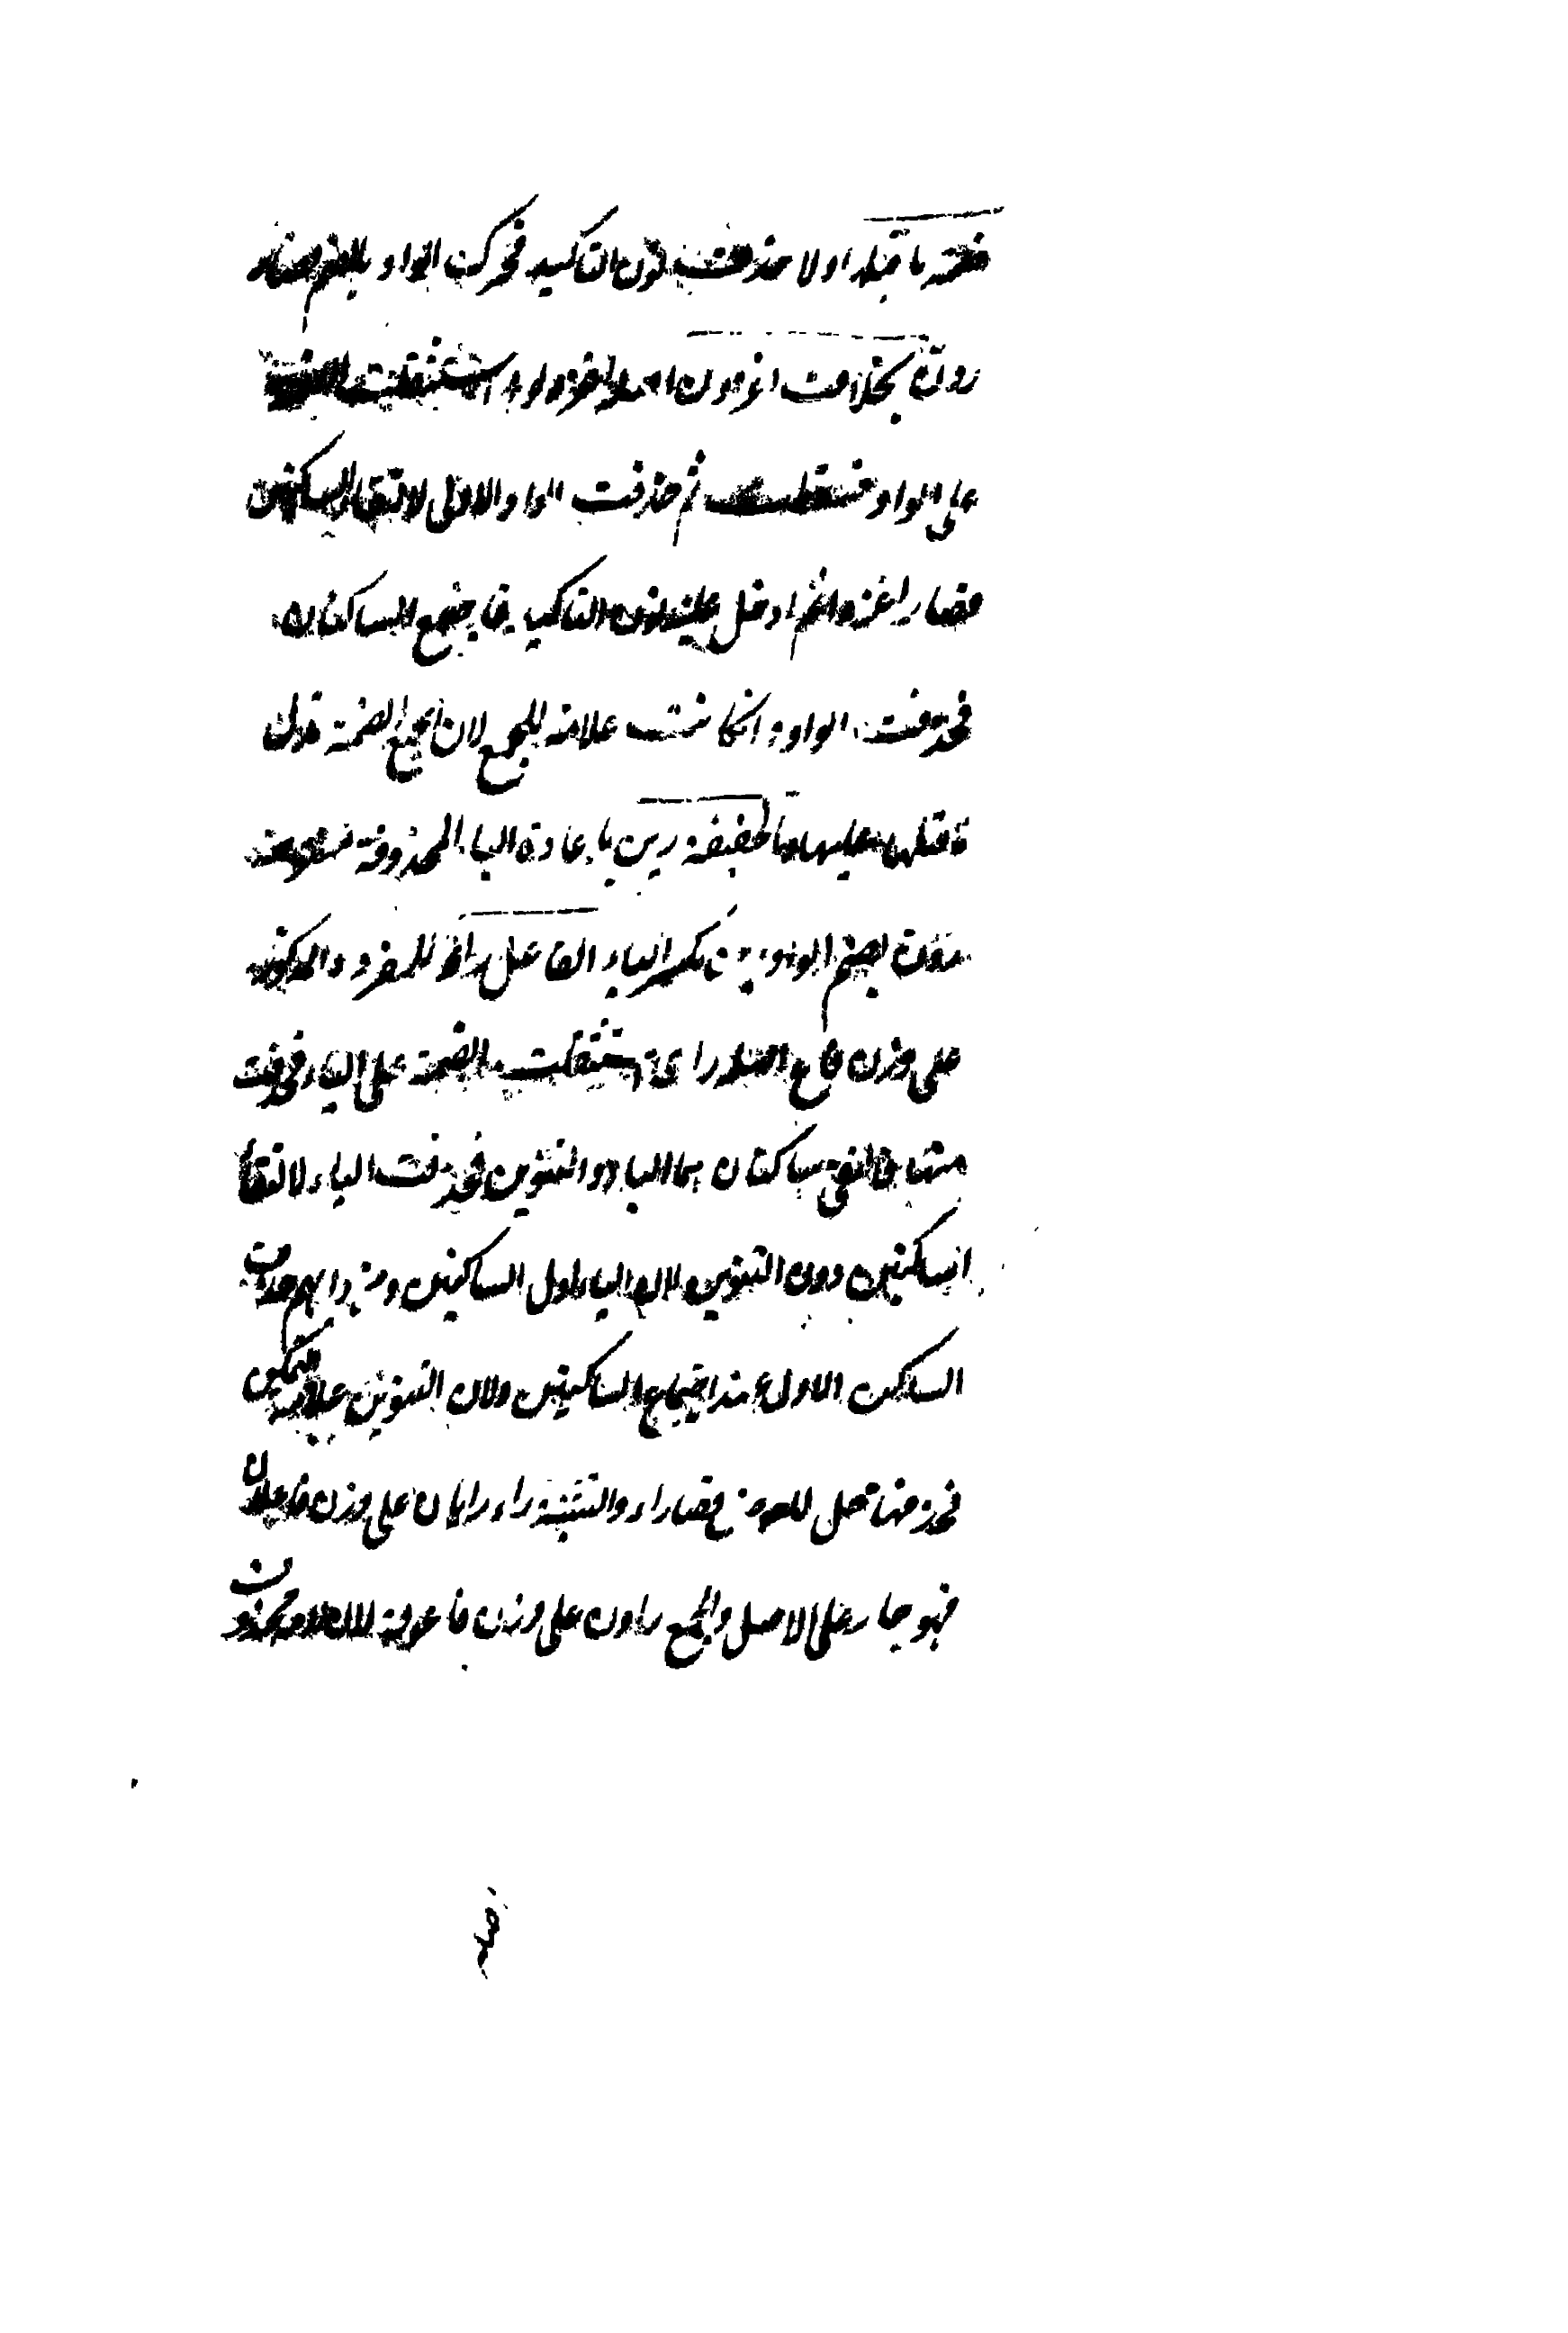 فتحة ما قبله اولا حذفت نون التاكيد فحركت الواو بالضم فصار
رون بخلاف اغزون اصله اغزووا استثقلت الضمة
على الواو فنقلت ثم حذفت الواو الاولى لالتقاء الساكنين
فصار اغزوا ثم ادخل عليه نون التاكيد فاجتمع الساكنان
فحذفت الواو وان كانت علامة للجمع لان الضمة تدل
ما قبلها عليها وبالخفيفة رين باعادة الياء المحذوفة مفتوحة
رون بضم الواو رين بكسر الياء الفاعل راء للمفرد المذكر
على وزن فاع اصله راى استثقلت الضمة على الياء فحذفت
منها فالتقى ساكنان هما الياء والتنوين فحذفت الياء لالتقاء
الساكنين دون التنوين لان الياء اول الساكنين ومن دابهم حذف
الساكن الاول عند اجتماع الساكنين ولان التنوين علامة التمكن
فحذفها تخل للغرض فصار راء والتثنية راء رايان على وزن فاعلان
فهو جار على الاصل والجمع راون على وزن فاعون لان لامه محذوف